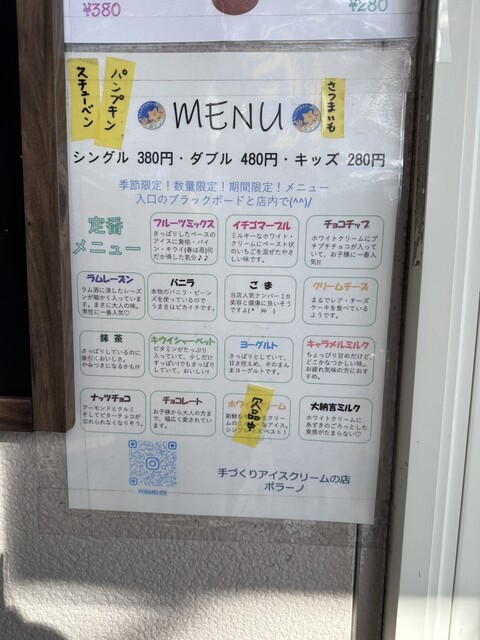 ¥380
¥280
スチューベン
パンプキン
さつまいも
MENU
シングル 380円・ダブル 480円・キッズ 280円
季節限定！数量限定！期間限定！メニュー
入口のブラックボードと店内で(^^)/
定番
メニュー
フルーツミックス
さっぱりしたベースの
アイスに黄桃・パイ
ン・キウイ(春は苺)何
だか得した気分♪♪
イチゴマーブル
ミルキーなホワイト・
クリームにペースト状
のいちごを混ぜたやさ
しい味です。
チョコチップ
ホワイトクリームにプ
チプチチョコが入って
いて、お子様に一番人
気!!
ラムレーズン
ラム酒に浸したレーズ
ンが細かく入っていま
す。まさに大人の味。
男性に一番人気♡
バニラ
本物のバニラ・ビーン
ズを使っているので
うまさはピカイチです。
ごま
当店人気ナンバー１!!
美容と健康に良いそう
ですよ(*^艸^)
クリームチーズ
まるでレア・チーズ
ケーキを食べている
ようです。
抹茶
さっぱりしているのに
後引くおいしさ。
やみつきになるかも!?
キウイシャーベット
ビタミンがたっぷり
入っていて、少しだけ
すっぱい!でもさっぱり
していて、おいしい!
ヨーグルト
さっぱりとしていて、
甘さ控えめ、そのまん
まヨーグルトです。
キャラメルミルク
ちょっぴり甘めだけど、
どこかなつかしい味…
お疲れ気味の方におす
すめ。
ナッツチョコ
アーモンドとクルミ
そしてビターチョコが
忘れられなくなりそう。
チョコレート
お子様から大人の方ま
で、幅広く愛されてい
ます。
欠品中
大納言ミルク
ホワイトクリームに
あずきのごろっとした
食感がたまらない♡
手づくりアイスクリームの店
ポラーノ
PORANO.ICE